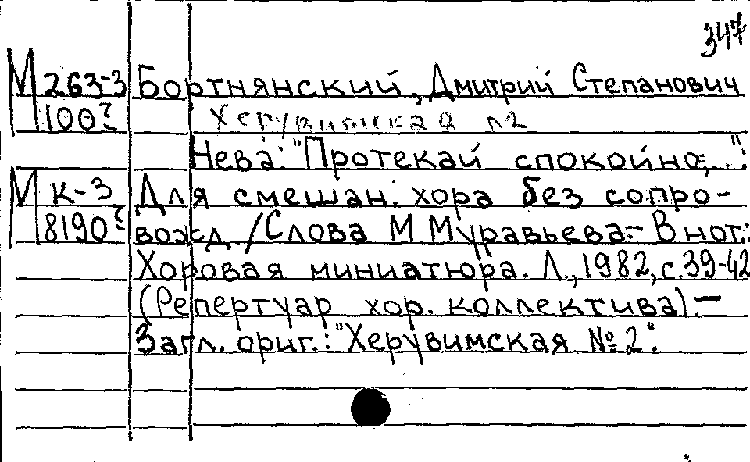 347
М 263-3 Бортнянский, Дмитрий Степанович
100? Херувимская №2
Нева: "Протекай спокойно,..":
М К-3 Для смешан. хора без сопро-
8190? вожд / Слова М Муравьева.- В нот.:
Хоровая миниатюра. Л., 1982, с.39-42
(Репертуар хор. коллектива).-
Загл. ориг.: "Херувимская №2".